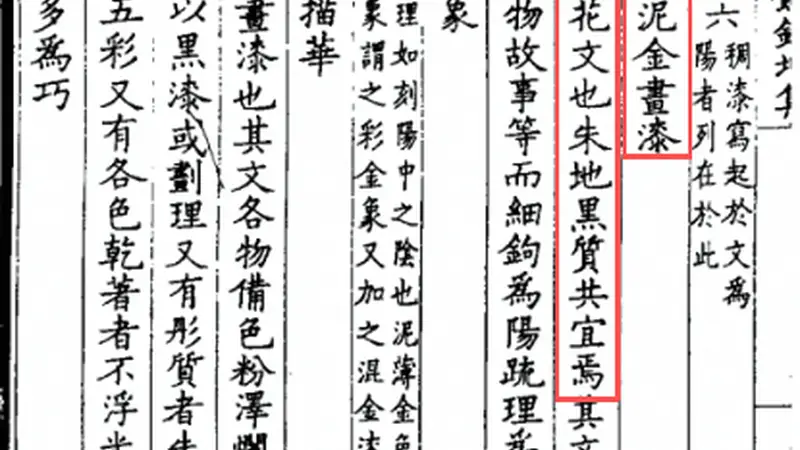 六
稠漆寫起於文為
陽者列在於此
泥金畫漆
花文也朱地黑質共宜焉其文
物故事等而細鉤為陽疏理為
象
理如刻陽中之陰也泥薄金色
象謂之彩金象又加之混金漆
描華
畫漆也其文各物備色粉澤爛
以黑漆或劃理又有彤質者
五彩又有各色乾著者不浮
多為巧